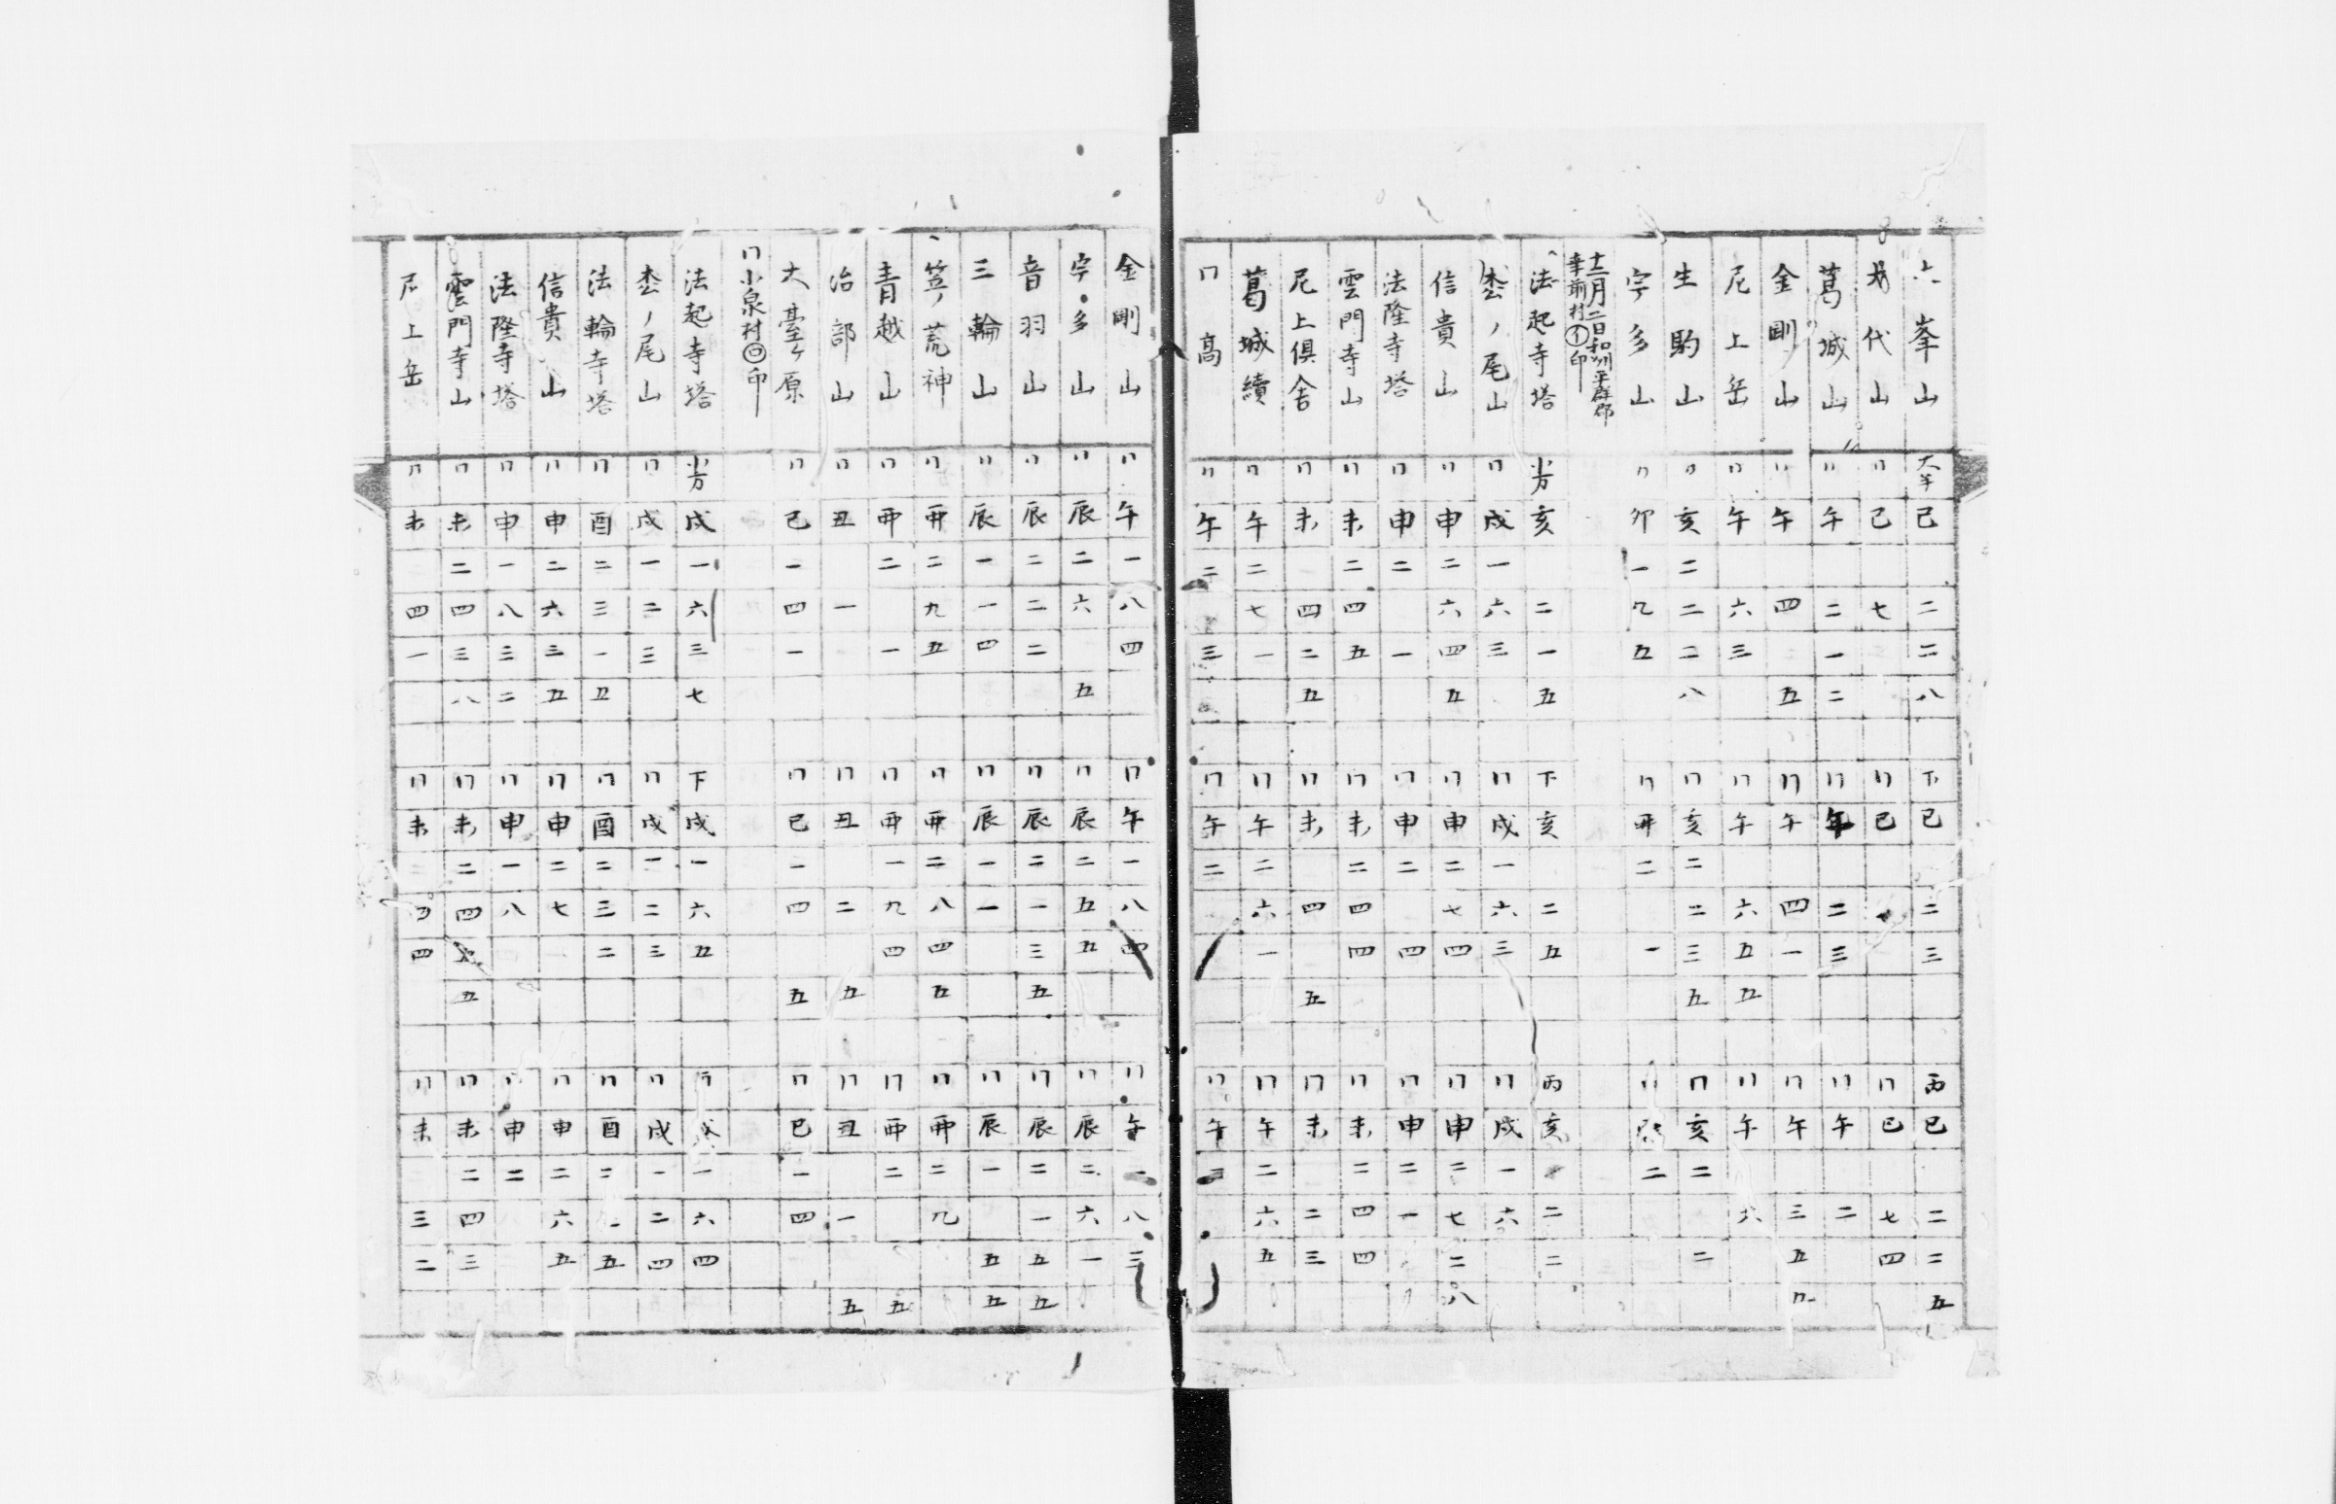 六峯山 大半 巳 二 二 八 下 巳 二 三 丙 巳 二 二 五
代山 〃 巳 七 〃 巳 〃 巳 七 四
葛城山 〃 午 二 一 二 〃 午 二 三 〃 午 二
金剛山 〃 午 四 五 〃 午 四 一 〃 午 三 五
尼上岳 〃 午 六 三 〃 午 六 五 五 〃 午 六
生駒山 〃 亥 二 二 二 八 〃 亥 二 二 三 五 〃 亥 二 二
宇多山 〃 卯 一 九 五 〃 卯 二 一 〃 二
十二月二日和州平群郡
幸前村㋑印
法起寺塔 亥 二 一 五 下 亥 二 五 丙 亥 二 二
ノ尾山 〃 戌 一 六 三 〃 戌 一 六 三 〃 戌 一 六
信貴山 〃 申 二 六 四 五 〃 申 二 七 四 〃 申 二 七 二 八
法隆寺塔 〃 申 二 一 〃 申 二 四 〃 申 二 一
雲門寺山 〃 未 二 四 五 〃 未 二 四 四 〃 未 二 四 四
尼上俱舍 〃 未 四 二 五 〃 未 四 五 〃 未 二 三
葛城續 〃 午 二 七 一 〃 午 二 六 一 〃 午 二 六 五
〃高 〃 午 二 三 〃 午 二 〃 午
金剛山 〃 午 一 八 四 〃 午 一 八 四 〃 午 一 八 三
宇多山 〃 辰 二 六 五 〃 辰 二 五 五 〃 辰 二 六 一
音羽山 〃 辰 二 二 二 〃 辰 二 一 三 五 〃 辰 二 一 五 五
三輪山 〃 辰 一 一 四 〃 辰 一 一 〃 辰 一 五 五
笠ノ荒神 〃 卯 二 九 五 〃 卯 二 八 四 五 〃 卯 二 九
青越山 〃 卯 二 一 〃 卯 一 九 四 〃 卯 二 五
治部山 〃 丑 一 〃 丑 二 五 〃 丑 一 五
大臺ヶ原 〃 巳 一 四 一 〃 巳 一 四 五 〃 巳 一 四
〃小泉村㋺印
法起寺塔 戌 一 六 三 七 下 戌 一 六 五 一 六 四
ノ尾山 〃 戌 一 二 三 〃 戌 一 二 三 〃 戌 一 二 四
法輪寺塔 〃 酉 二 三 一 五 〃 酉 二 三 二 〃 酉 二 五
信貴山 〃 申 二 六 三 五 〃 申 二 七 〃 申 二 六 五
法隆寺塔 〃 申 一 八 三 二 〃 申 一 八 〃 申 二
雲門寺山 〃 未 二 四 三 八 〃 未 二 四 五 〃 未 二 四 三
尼上岳 〃 未 四 一 〃 未 四 四 〃 未 三 二